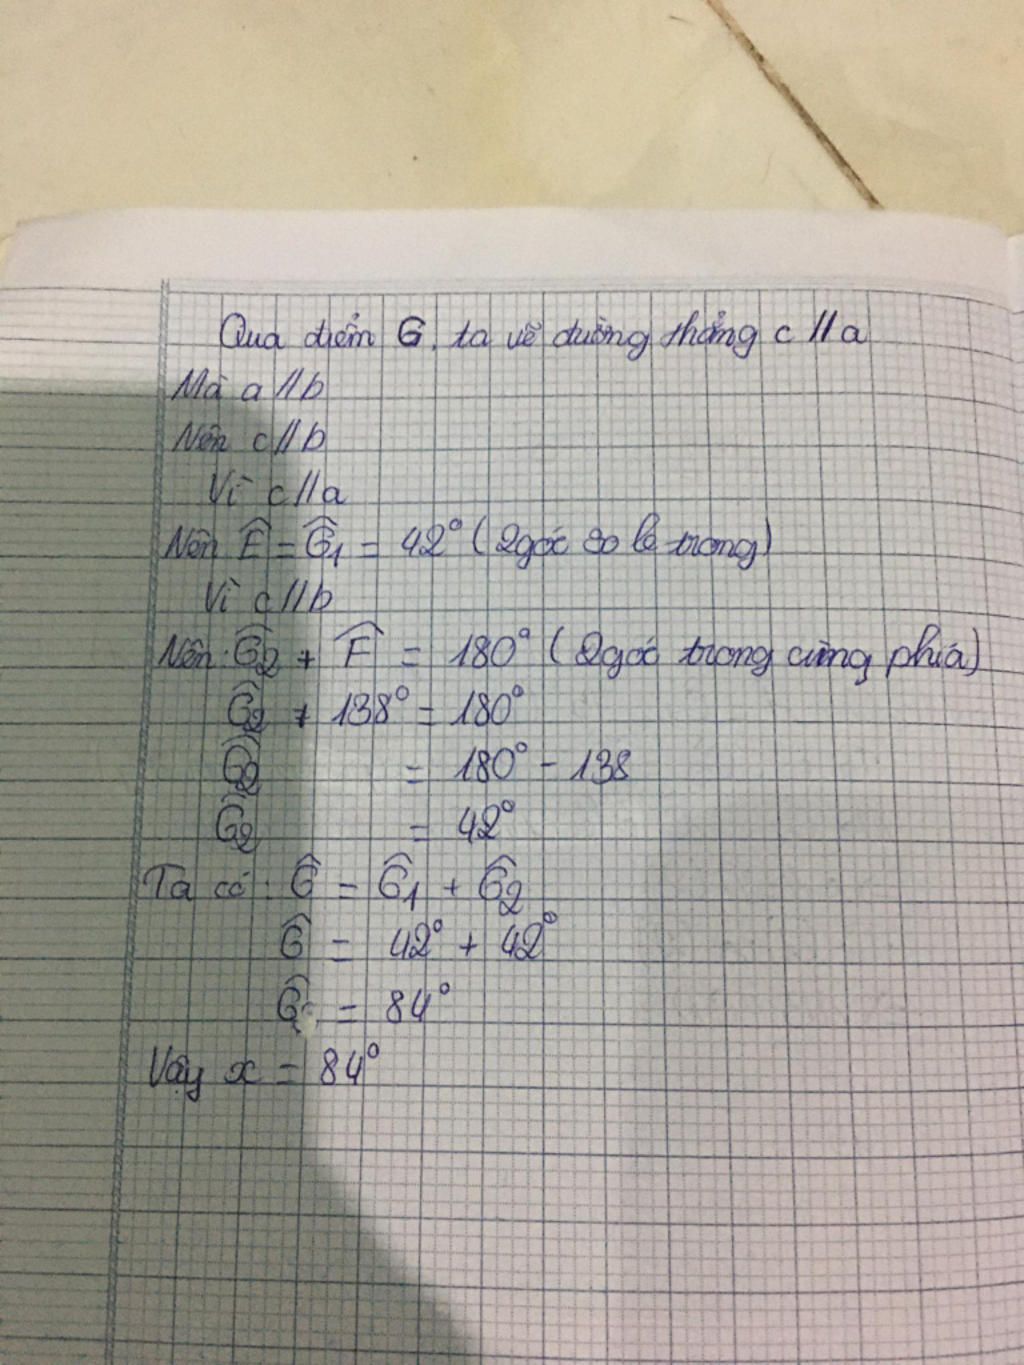 Qua điểm G, ta vẽ đường thẳng c // a
Mà a // b
Nên c // b
Vì c // a
Nên Ê = Ĝ1 = 42° (2 góc so le trong)
Vì c // b
Nên: Ĝ2 + F̂ = 180° (2 góc trong cùng phía)
Ĝ2 + 138° = 180°
Ĝ2 = 180° - 138
Ĝ2 = 42°
Ta có: Ĝ = Ĝ1 + Ĝ2
Ĝ = 42° + 42°
Ĝ = 84°
Vậy x = 84°